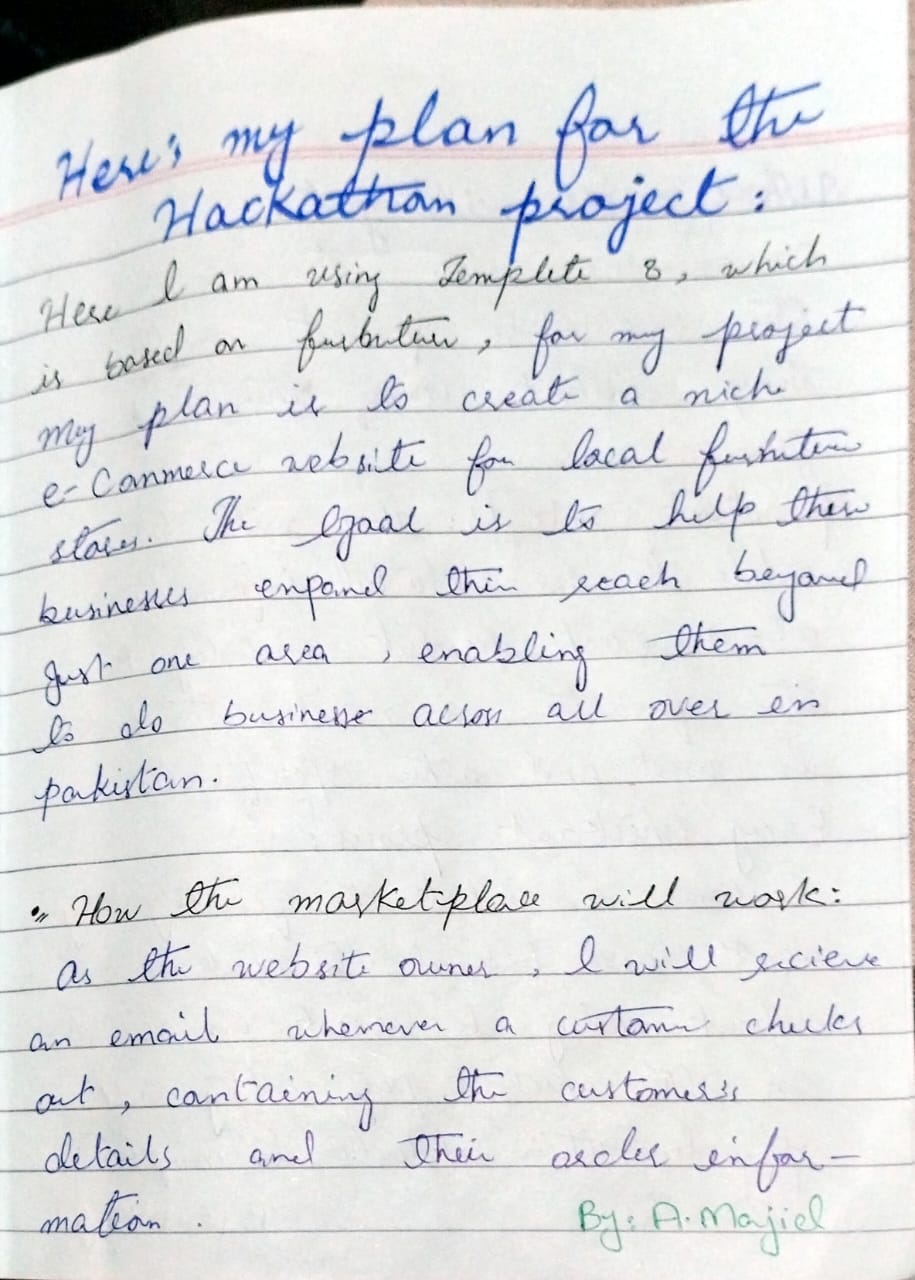 Here's my plan for the
Hackathon project:
Here I am using Templete 8, which
is based on furbuture, for my project
my plan is to create a niche
e-Commerce website for local furniture
stores. The goal is to help these
businesses enpand thir reach beyond
just one area, enabling them
to do businesse across all over in
pakistan.
How the marketplace will work:
as the website owner, I will recieve
an email whenever a custome checks
out, containing the customer's
details and their order infor-
mation.
By: A. Majid